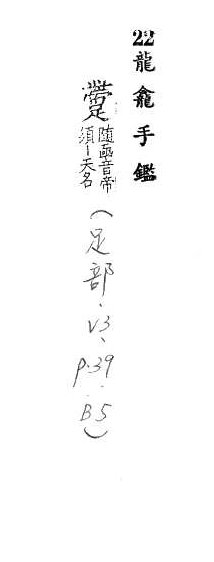 22龍龕手鑑
䠠隨函音帝
須〡天名
(足部.V3、P.39.B5)